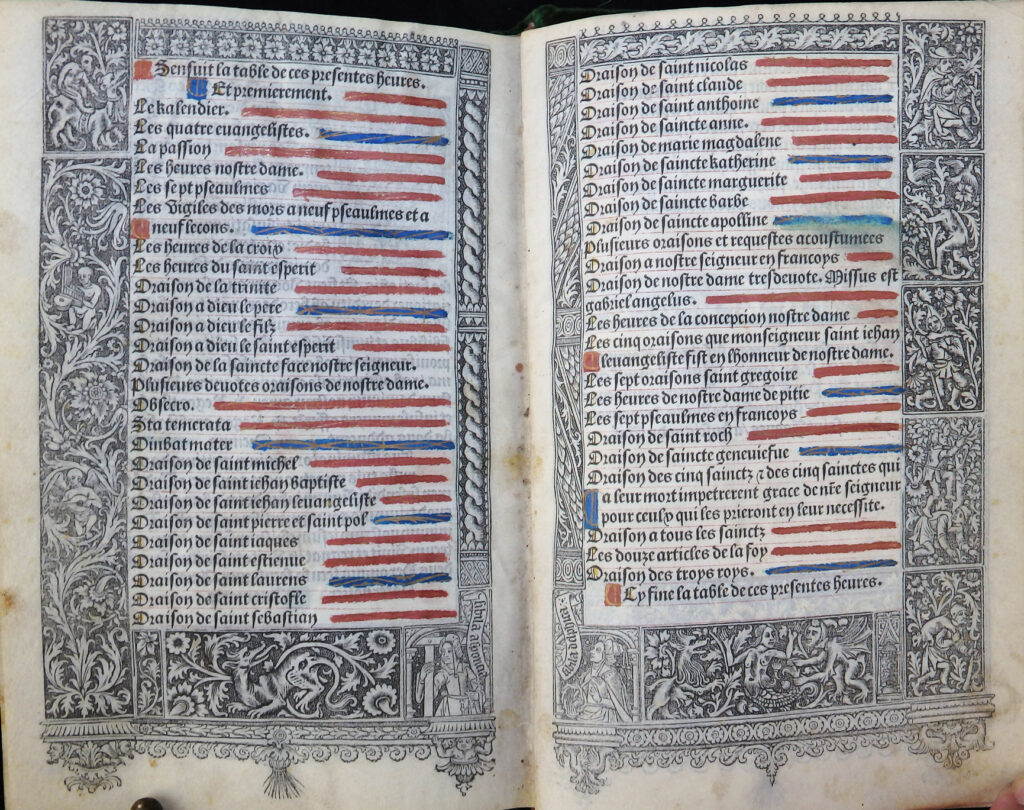 Sensuit la table de ces presentes heures.
Et premierement.
Le kalendier.
Les quatre euangelistes.
La passion
Les heures nostre dame.
Les sept pseaulmes
Les Vigiles des mors a neuf pseaulmes et a
neuf lecons.
Les heures de la croix
Les heures du saint esperit
Oraison de la trinite
Oraison a dieu le pere
Oraison a dieu le filz
Oraison a dieu le saint esperit
Oraison de la saincte face nostre seigneur.
Plusieurs deuotes oraisons de nostre dame.
Obsecro.
O intemerata
Stabat mater
Oraison de saint michel
Oraison de saint iehan baptiste
Oraison de saint iehan leuangeliste
Oraison de saint pierre et saint pol
Oraison de saint iaques
Oraison de saint estienne
Oraison de saint laurens
Oraison de saint cristofle
Oraison de saint sebastian
Oraison de saint nicolas
Oraison de saint claude
Oraison de saint anthoine
Oraison de saincte anne.
Oraison de marie magdalene
Oraison de saincte katherine
Oraison de saincte marguerite
Oraison de saincte barbe
Oraison de saincte apolline
Plusieurs oraisons et requestes acoustumees
Oraison a nostre seigneur en francoys
Oraison de nostre dame tresdeuote. Missus est
gabriel angelus.
Les heures de la concepcion nostre dame
Les cinq oraisons que monseigneur saint iehan
leuangeliste fist en lhonneur de nostre dame.
Les sept oraisons saint gregoire
Les heures de nostre dame de pitie
Les sept pseaulmes en francoys
Oraison de saint roch
Oraison de saincte geneuiefue
Oraison des cinq sainctz ⁊ des cinq sainctes qui
a leur mort impetrerent grace de nr̃e seigneur
pour ceulx qui les prieront en leur necessite.
Oraison a tous les sainctz
Les douze articles de la foy
Oraison des troys roys.
Cy fine la table de ces presentes heures.